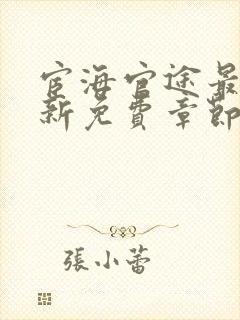 宦海官途最
新免費章節
張小蕾